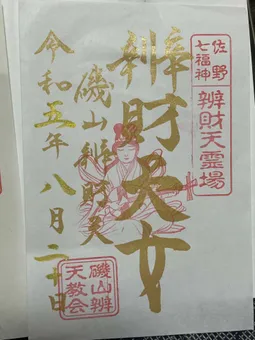 佐野
七福神
辨財天霊場
辨財天女
磯山辨財天
令和五年八月二十日
磯山辨
天教会